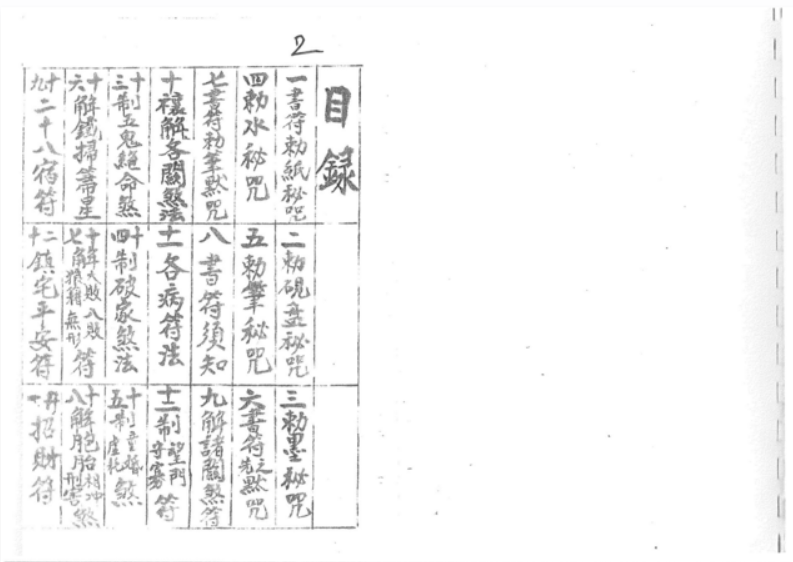 2
目錄
一書符勅紙秘咒
二勅硯盘秘咒
三勅墨秘咒
四勅水秘咒
五勅筆秘咒
六書符之先黙咒
七書符勅筆黙咒
八書符須知
九解諸關煞符
十禳解各關煞法
十一各病符法
十二制望門守寡符
十三制五鬼絕命煞
十四制破家煞法
十五制童婚虛耗煞
十六解鐵掃箒星
十七解大敗八敗狼籍無形符
十八解胞胎相冲刑害煞
十九二十八宿符
二十鎮宅平安符
廿一招財符